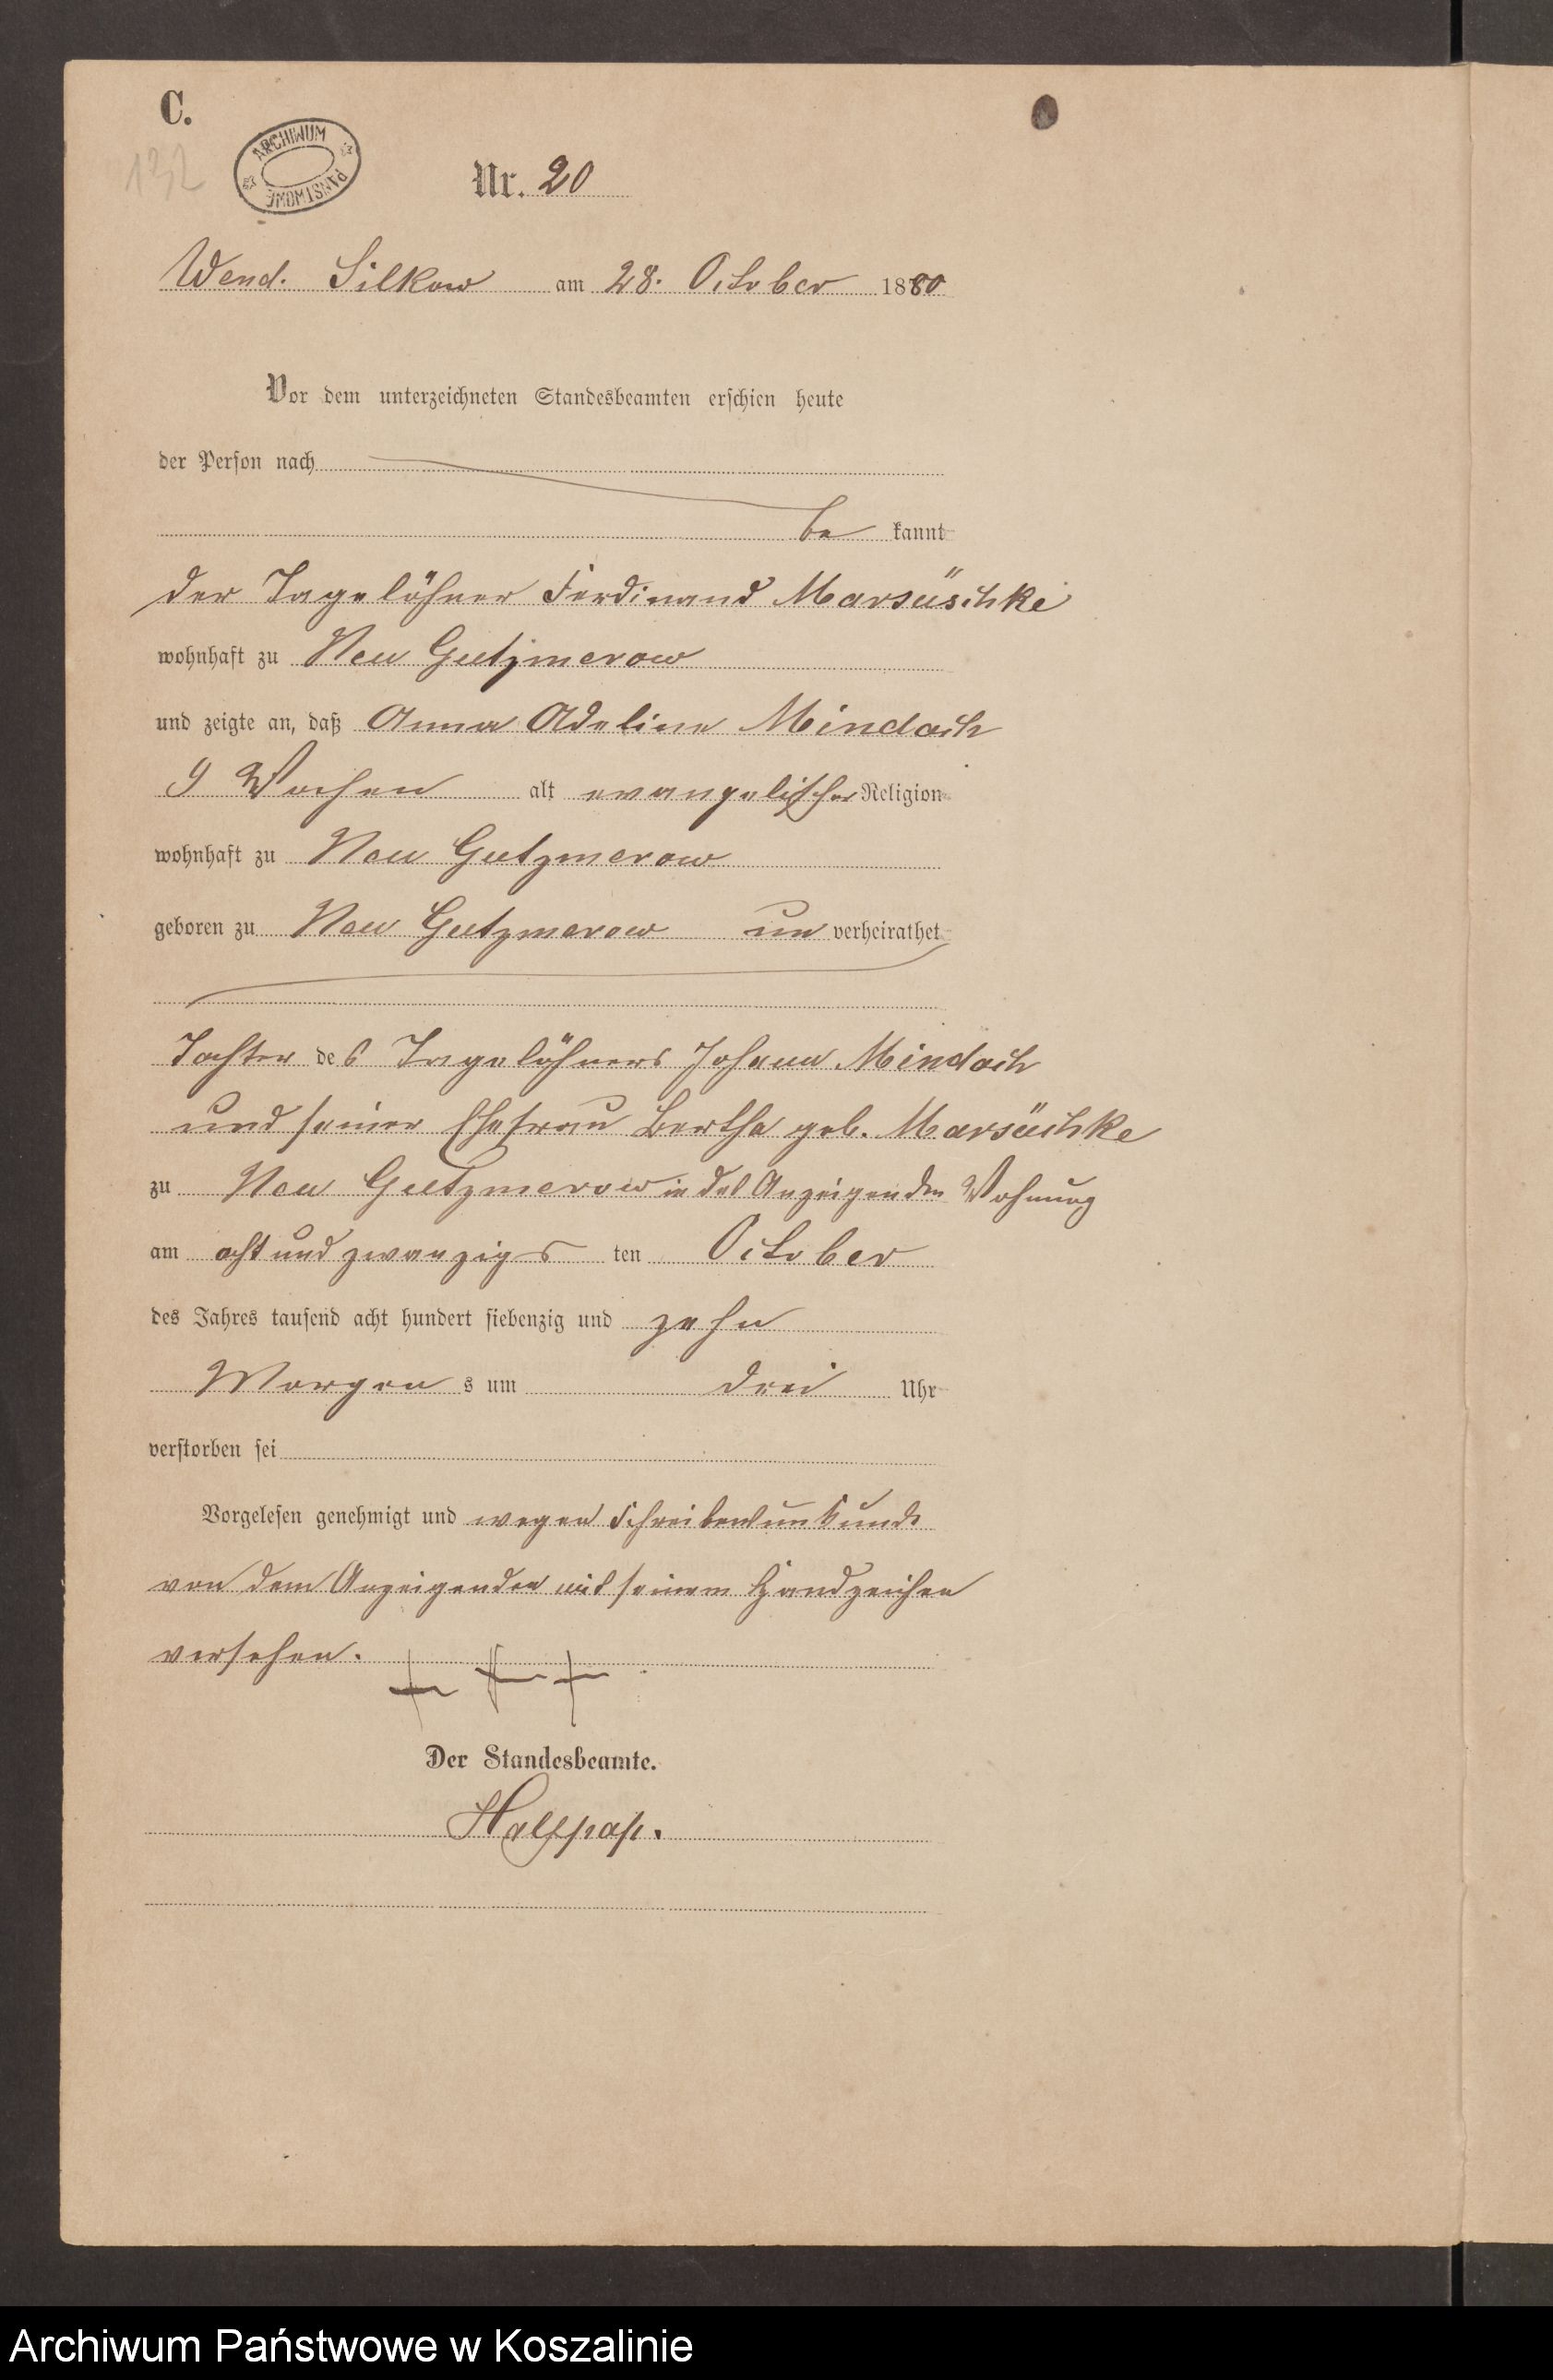 C.
132
ARCHIWUM PAŃSTWOWE
Nr. 20
Wend. Silkow am 28. October 1880
Vor dem unterzeichneten Standesbeamten erschien heute
der Person nach
be kannt
der Tagelöhner Ferdinand Marsüschke
wohnhaft zu Neu Gutzmerow
und zeigte an, daß Anna Adeline Mindach
9 Wochen alt evangelischer Religion
wohnhaft zu Neu Gutzmerow
geboren zu Neu Gutzmerow un verheirathet
Tochter des Tagelöhners Johann Mindach
und seiner Ehefrau Bertha geb. Marsüchke
zu Neu Gutzmerow in des Anzeigenden Wohnung
am acht und zwanzigs ten October
des Jahres tausend acht hundert siebenzig und zehn
Morgen s um drei Uhr
verstorben sei
Vorgelesen genehmigt und wegen Schreibensunkunde
von dem Anzeigenden mit seinem Handzeichen
versehen.
+ + +
Der Standesbeamte.
Halfpap.
Archiwum Państwowe w Koszalinie